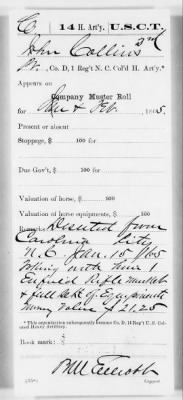 C | 14 H. Art'y. | U.S.C.T.
John Collins 2nd
Pt., Co. D, 1 Reg't N. C. Col'd H. Art'y.*
Appears on
Company Muster Roll
for Jan & Feb, 1865
Present or absent
Stoppage, $ 100 for
Due Gov't, $ 100 for
Valuation of horse, $ 100
Valuation of horse equipments, $ 100
Remarks: Deserted from
Carolina City
N.C. Jan. 15/65
taking with him 1
Enfield Rifle musket
& full set of Equipments
money value $21.25
* This organization subsequently became Co. D, 14 Reg't U. S. Colored Heavy Artillery.
Book mark:
Copyist.